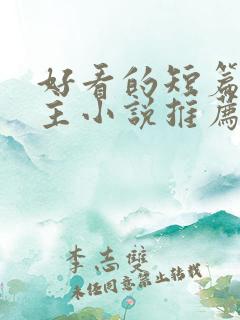 好看的短篇
主小说推薦
李志雙
未任同意禁止转载